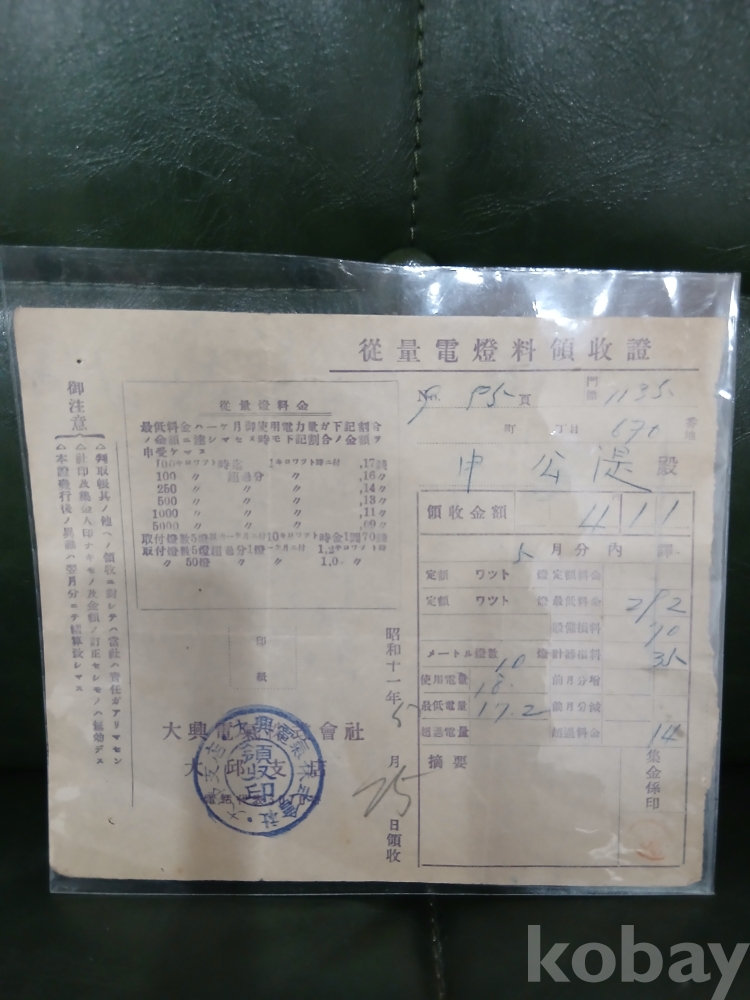 從量電燈料領收證
No. 95 頁 1135
町 丁目 番地
申公湜殿
領收金額 4 1 1
5月分內譯
定額 ワット 燈定額料金
定額 ワット 燈最低料金 292
設備損料 70
メートル燈數 10 燈計器損料 35
使用電量 18. 前月分增
最低電量 17.2 前月分減
超過電量 超過料金 14
摘要
集金係印
昭和十一年5月25日領收
從量燈料金
最低料金ハ一ケ月御使用電力量ガ下記割合
ノ金額ニ達シマセヌ時モ下記割合ノ金額ヲ
申受ケマス
100キロワット時迄 1キロワット時ニ付 .17錢
100 〃 超過分 〃 .16〃
250 〃 〃 .14〃
500 〃 〃 .13〃
1000 〃 〃 .11〃
5000 〃 〃 .09〃
取付燈數5燈迄一ケ月ニ付10キロワット時金1圓70錢
取付燈數5燈超過分1燈一ケ月ニ付 1.2キロワット時
〃 50燈 〃 1.0 〃
印
紙
大興電氣株式會社
大邱支店
領收印
御注意
△判取帳其ノ他ヘノ領收ニ對シテハ當社ハ責任ガアリマセン
△社印及集金人印ナキモノ及金額ノ訂正セシモノハ無効デス
△本證發行後ノ異動ハ翌月分ニテ精算致シマス
kobay